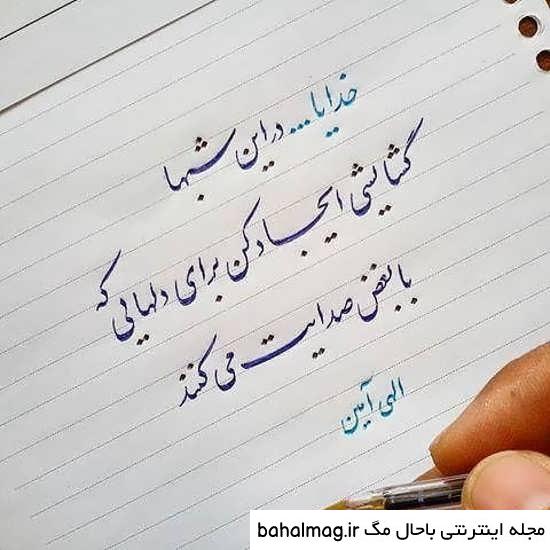 خدایا... در این شبها
گشایشی ایجاد کن برای دلهایی که
با بغض صدایت می کنند
الهی آمین
مجله اینترنتی باحال مگ bahalmag.ir